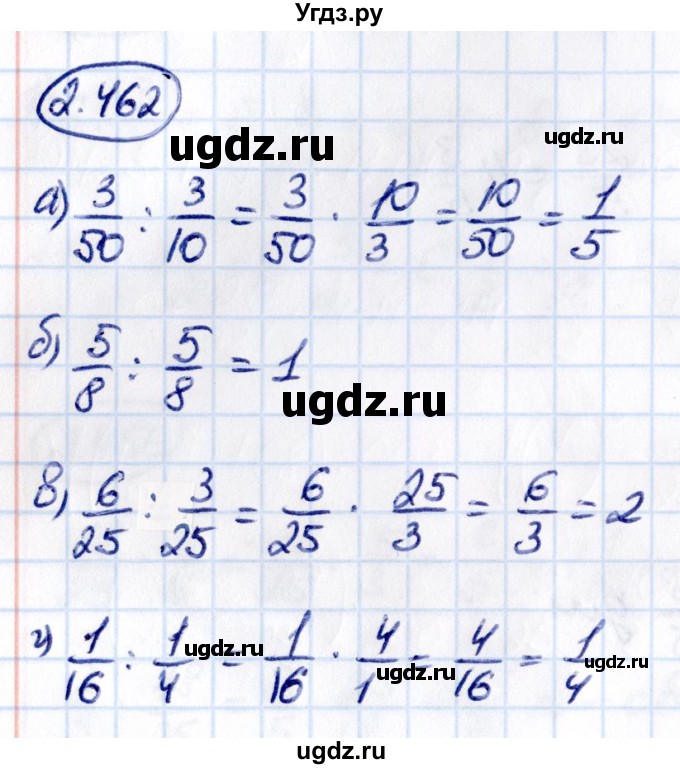 Угдз.ру
2.462
ugdz.ru ugdz.ru
а) 3/50 : 3/10 = 3/50 · 10/3 = 10/50 = 1/5
б) 5/8 : 5/8 = 1
ugdz.ru
в) 6/25 : 3/25 = 6/25 · 25/3 = 6/3 = 2
г) 1/16 : 1/4 = 1/16 · 4/1 = 4/16 = 1/4
ugdz.ru ugdz.ru
ugdz.ru